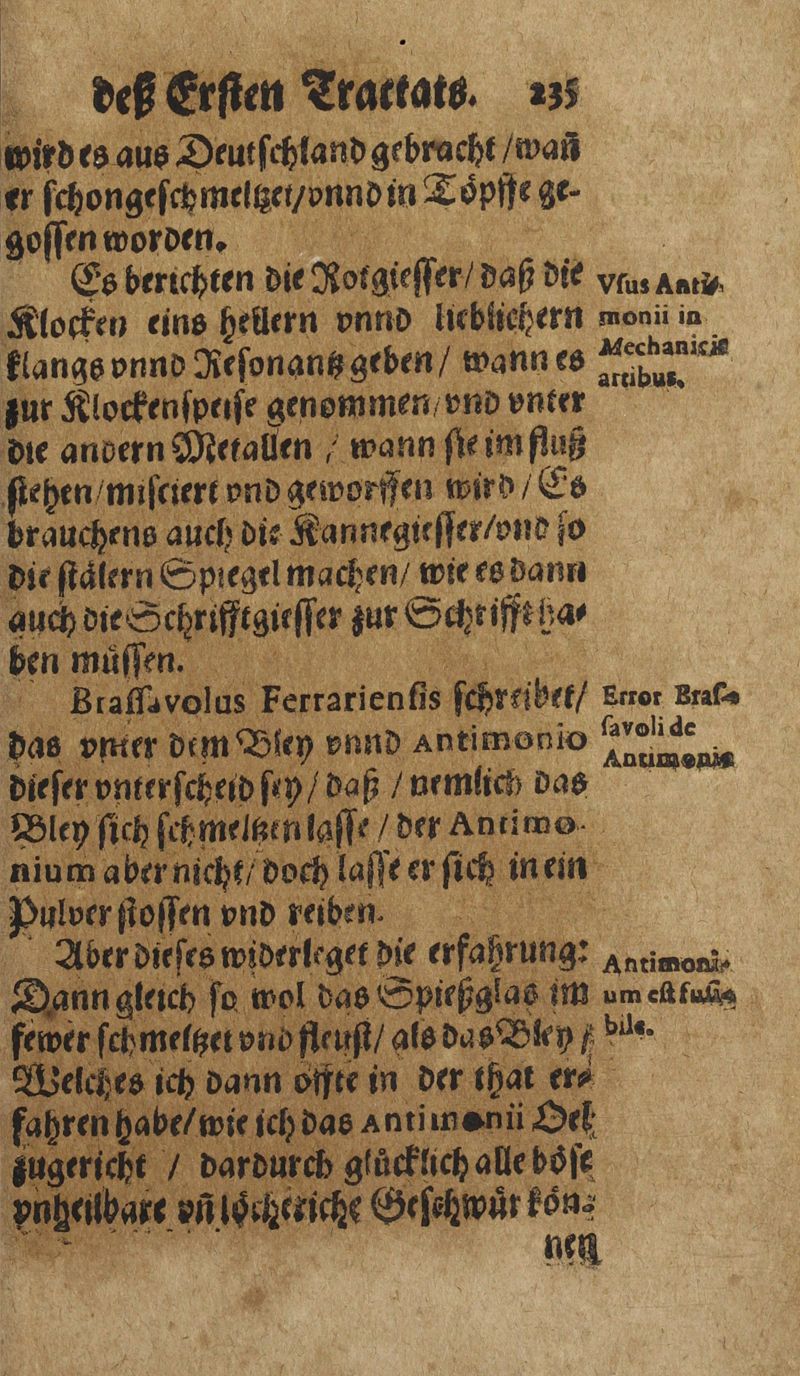 deß Ersten Tractats. 235
wird es aus Deutschland gebracht / wañ
er schon geschmeltzet / vnnd in Töpffe ge-
gossen worden.
Es berichten die Rotgiesser / daß die
Klocken eins hellern vnnd lieblichern
klangs vnnd Resonantz geben / wann es
zur Klockenspeise genommen / vnd vnter
die andern Metallen / wann sie im fluß
stehen / misciert vnd geworffen wird / Es
brauchens auch die Kannegiesser / vnd so
die stälern Spiegel machen / wie es dann
auch die Schrifftgiesser zur Schrifft ha-
ben müssen.
Vsus Anti-
monii in
Mechanicis
artibus.
Brassavolus Ferrariensis schreibet /
das vnter dem Bley vnnd Antimonio
dieser vnterscheid sey / daß / nemlich das
Bley sich schmeltzen lasse / der Antimo-
nium aber nicht / doch lasse er sich in ein
Pulver stossen vnd reiben.
Error Bras-
savoli de
Antimonio
Aber dieses widerleget die erfahrung:
Dann gleich so wol das Spießglas im
fewer schmeltzet vnd fleust / als das Bley /
Welches ich dann offte in der that er-
fahren habe / wie ich das Antimonii Oel
zugericht / dardurch glücklich alle böse
vnheilbare vñ löcheriche Geschwür kön-
nen
Antimoni-
um est fusi-
bile.